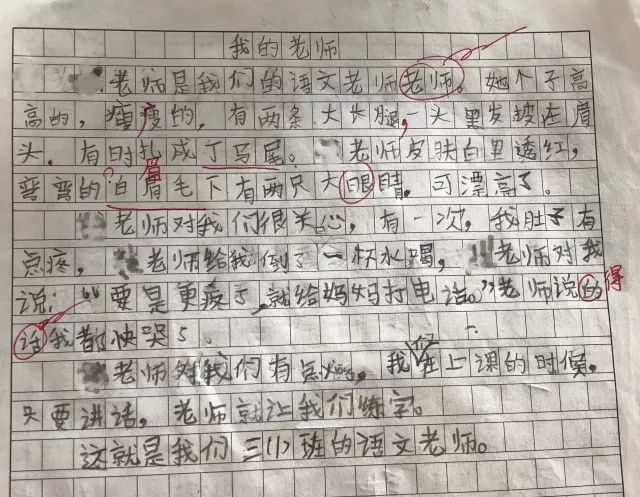 我的老师
老师是我们的语文老师老师。她个子高
高的，瘦瘦的，有两条大长腿，一头黑发披在肩
头，有时扎成丁马尾。老师皮肤白里透红，
弯弯的白眉毛下有两只大眼睛，可漂亮了。
老师对我们很关心，有一次，我肚子有
点疼，老师给我倒了一杯水喝，老师对我
说：“要是更疼了，就给妈妈打电话。”老师说的得
话我都快哭了。
老师对我们有点凶，我们在上课的时候，
只要讲话，老师就让我们练字。
这就是我们三(1)班的语文老师。